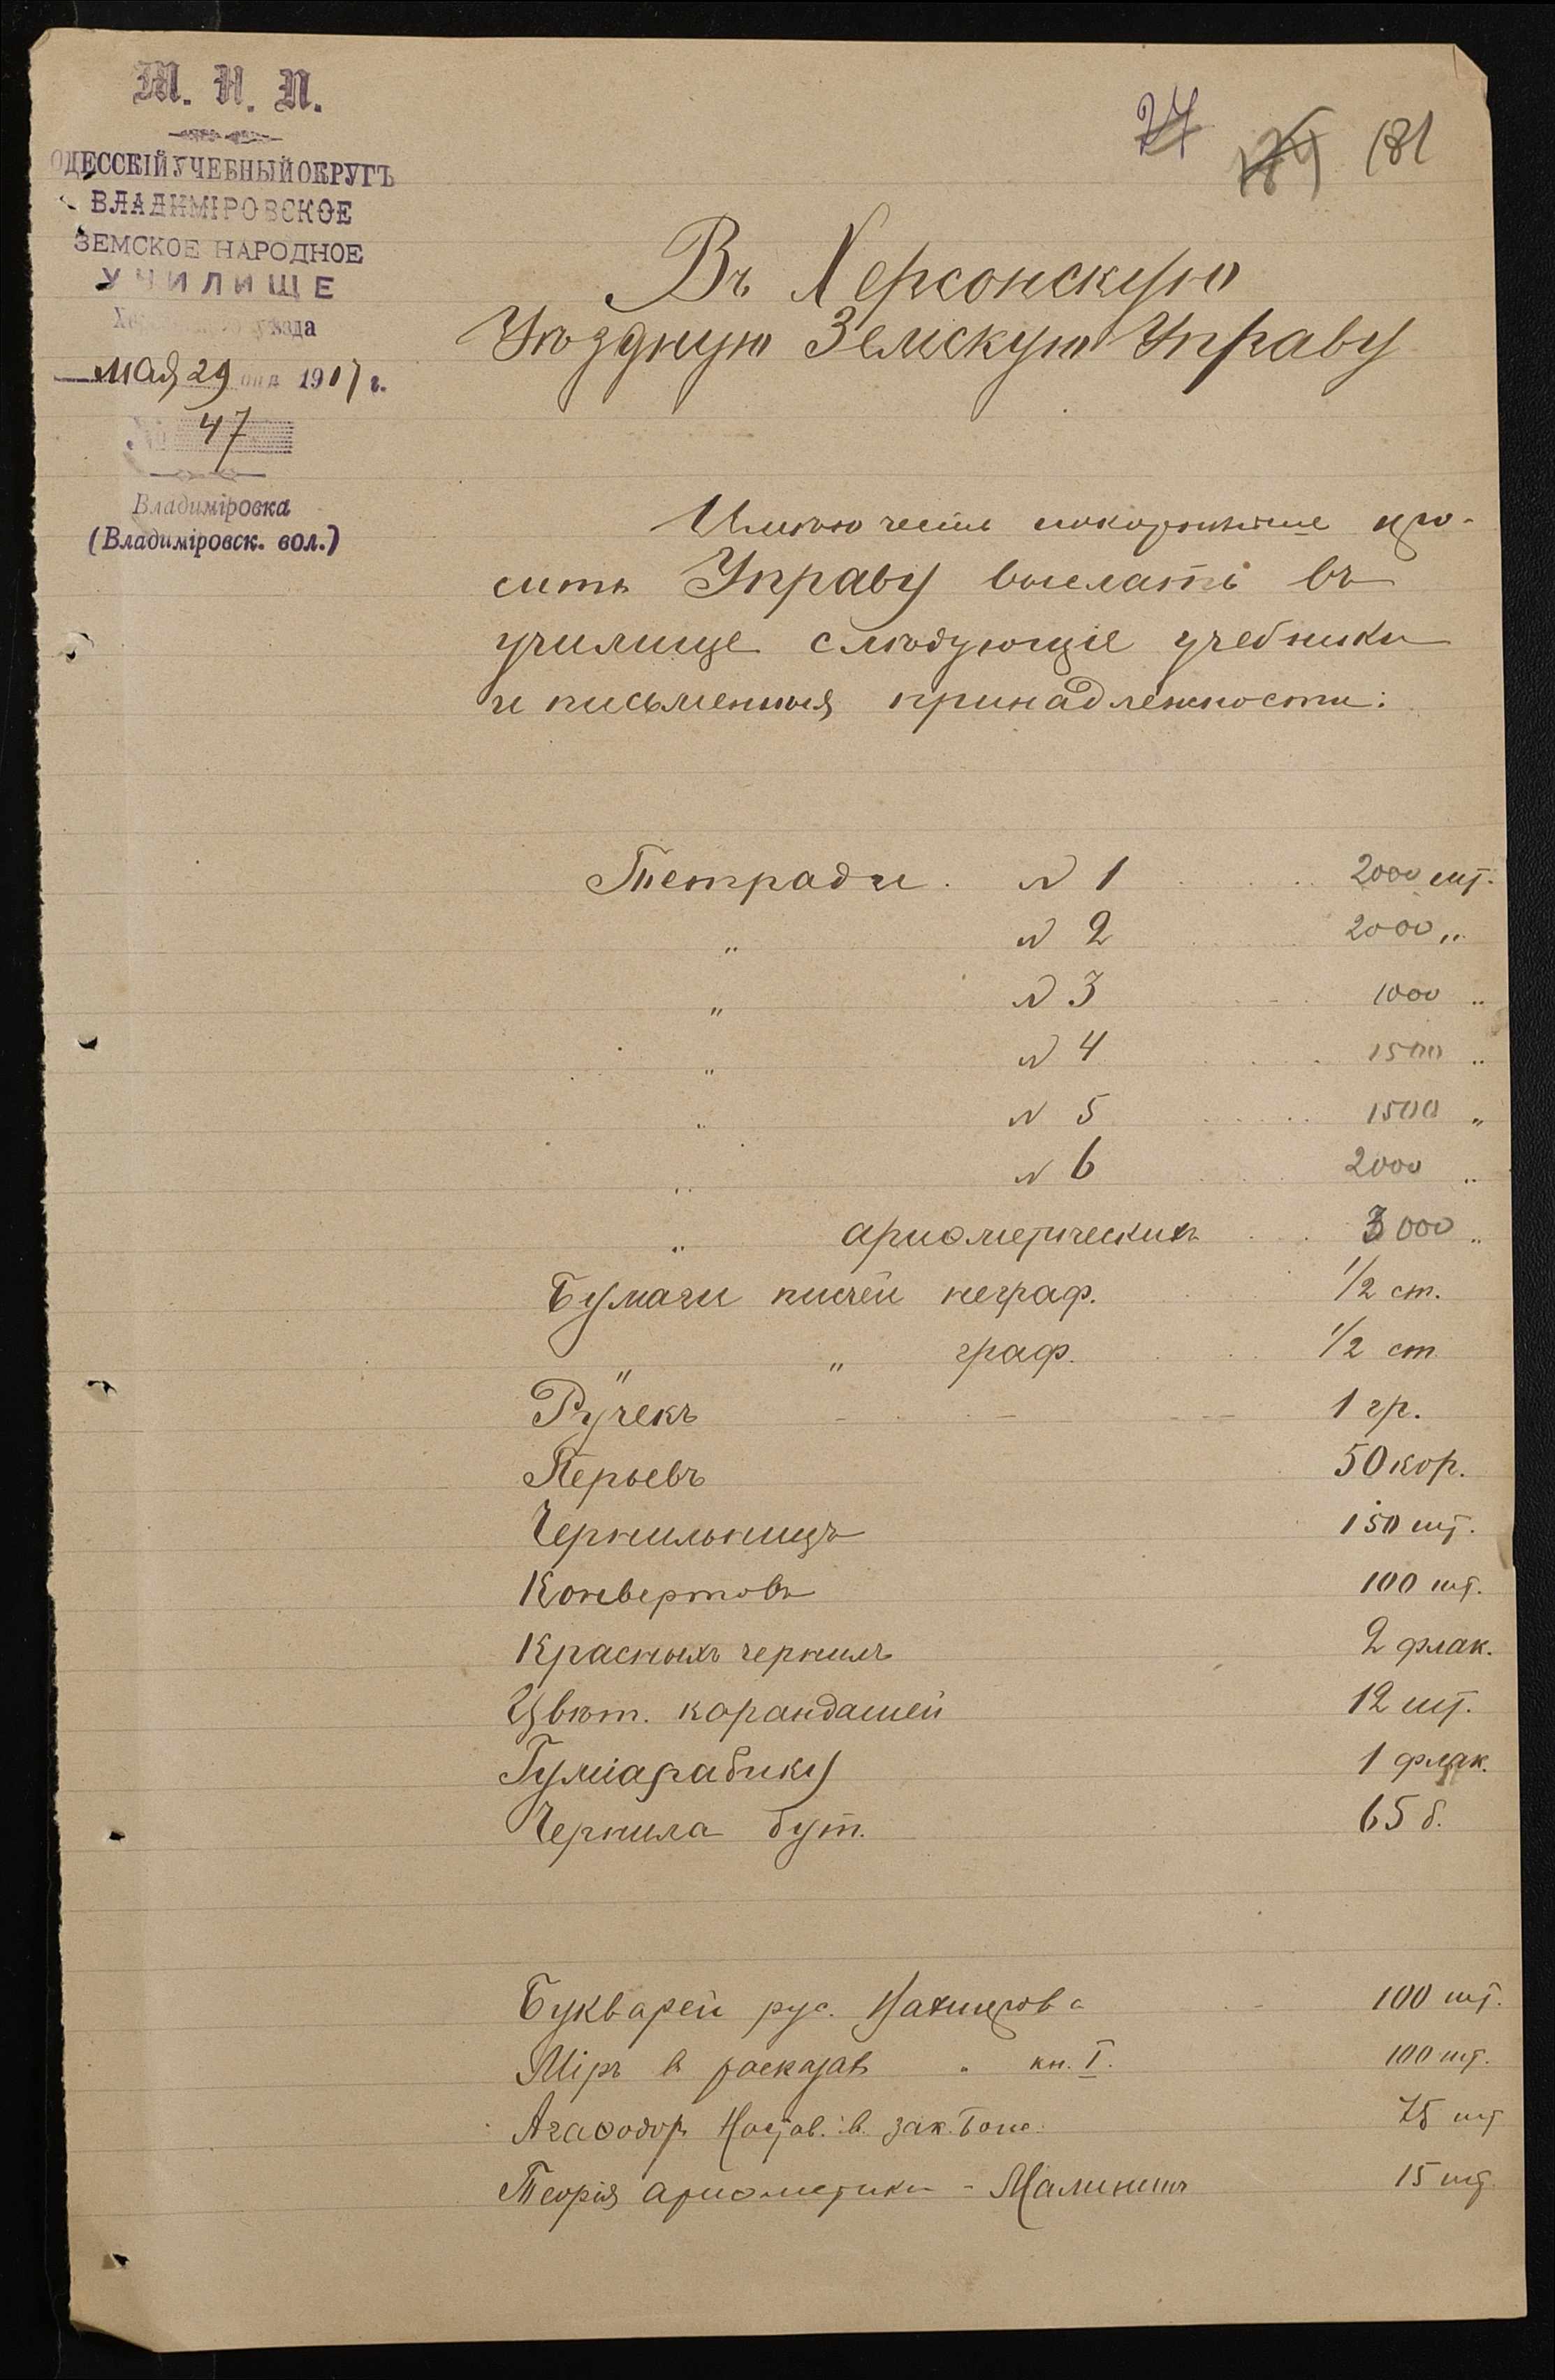 М. Н. П.
ОДЕССКІЙ УЧЕБНЫЙ ОКРУГЪ
ВЛАДИМІРОВСКОЕ
ЗЕМСКОЕ НАРОДНОЕ
УЧИЛИЩЕ
Херсонскаго уѣзда
мая 29 дня 1917 г.
№ 47
Владиміровка
(Владиміровск. вол.)
27 181
Въ Херсонскую
Уѣздную Земскую Управу
Имѣю честь покорнѣйше про-
сить Управу выслать въ
училище слѣдующіе учебники
и письменныя принадлежности:
Тетради. № 1 2000 шт.
„ № 2 2000 „
„ № 3 1000 „
„ № 4 1500 „
„ № 5 1500 „
„ № 6 2000 „
„ ариѳметическихъ 3000 „
Бумаги писчей неграф. 1/2 ст.
„ „ граф. 1/2 ст
Ручекъ 1 гр.
Перьевъ 50 кор.
Чернильницъ 150 шт.
Конвертовъ 100 шт.
Красныхъ чернилъ 2 флак.
Цвѣт. карандашей 12 шт.
Гуміарабику 1 флак.
Чернила бут. 65 б.
Букварей рус. Вахтерова 100 шт.
Міръ в расказах „ кн. I. 100 шт.
Агаѳодор Настав. в зак. Бож. 75 шт
Теорія ариѳметики - Малининъ 15 шт